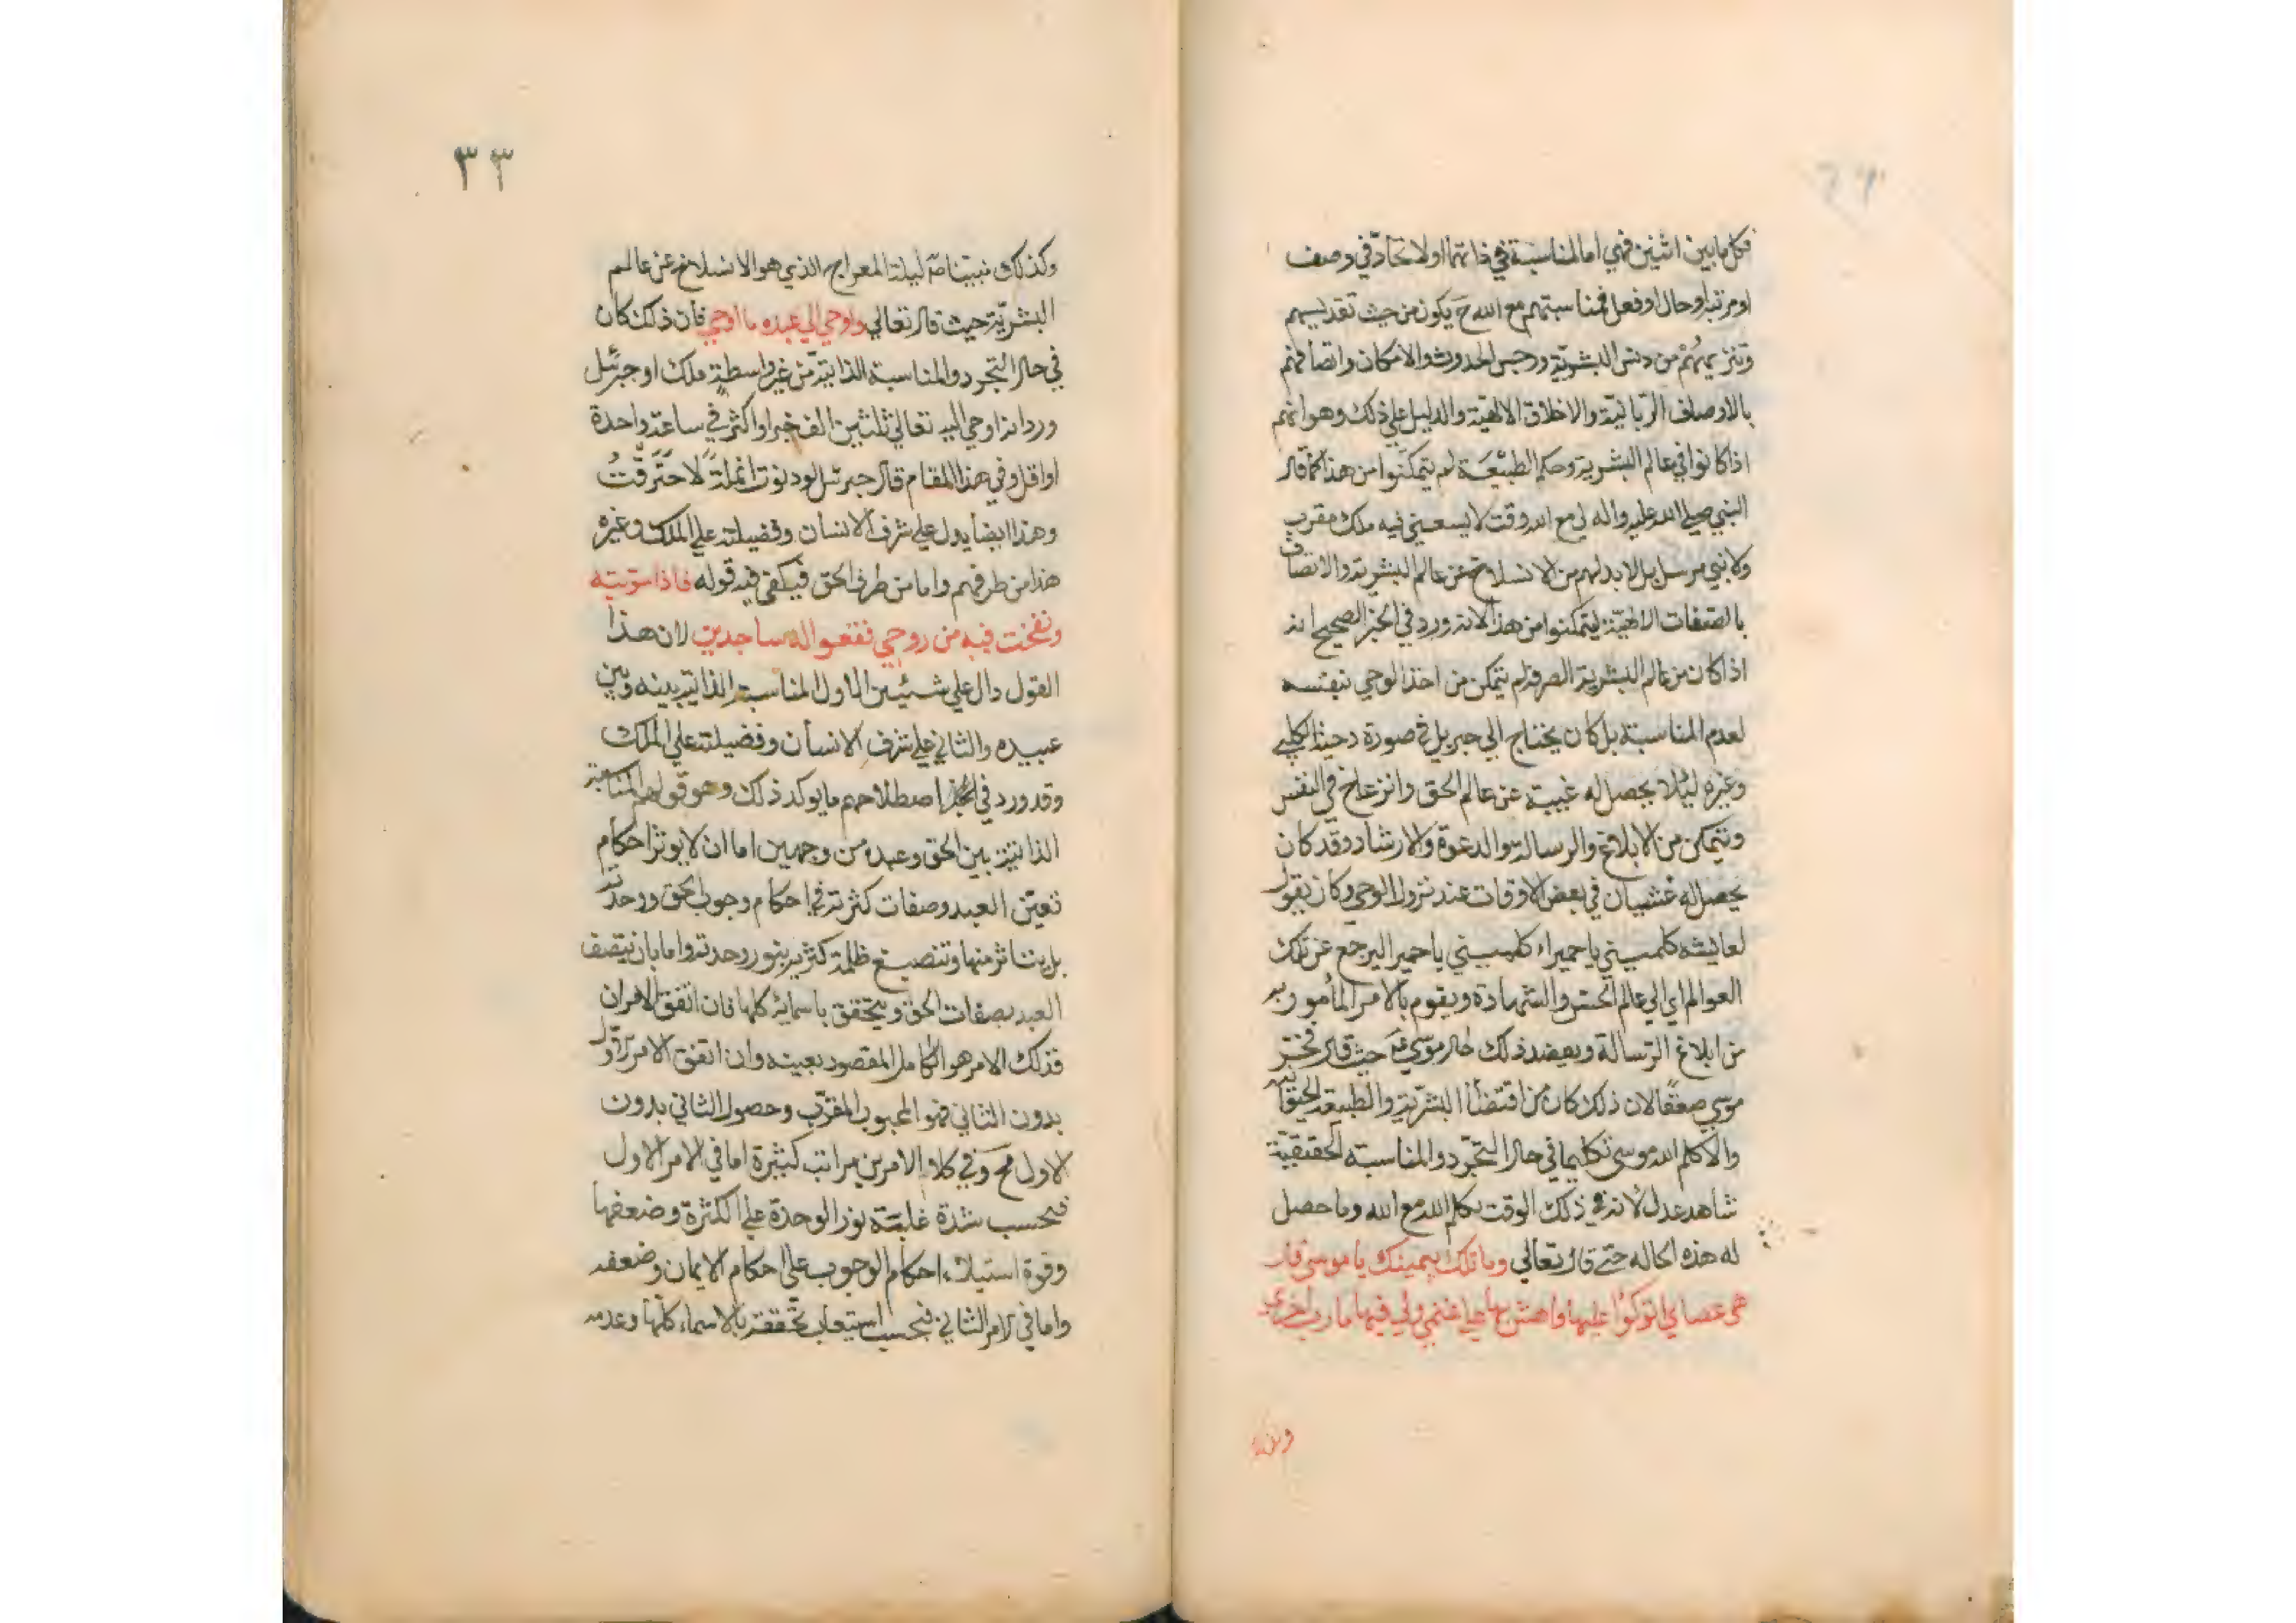 فكل ما بين اثنين فهي اما لمناسبة في ذاتهما او لاتحاد في وصف
او مرتبة او حال او فعل فمناسبتهم مع الله تع يكون من حيث تقديسهم
وتنزيههم من دنس البشرية ورجس الحدوث والامكان واتصافهم
بالاوصاف الربانية والاخلاق الالهية والدليل علي ذلك وهو انهم
اذا كانوا في عالم البشرية وحكم الطبيعة لم يتمكنوا من هذا كما قال
النبي صلي الله عليه واله لي مع الله وقت لا يسعني فيه ملك مقرب
ولا نبي مرسل بل لا بد لهم من الانسلاخ عن عالم البشرية والاتصاف
بالصفات الالهية ليتمكنوا من هذا لانه ورد في الخبر الصحيح انه
اذا كان من عالم البشرية الصرفة لم يتمكن من اخذ الوحي بنفسه
لعدم المناسبة بل كان يحتاج الي جبريل في صورة دحية الكلبي
وغيره ليلا يحصل له غيبة عن عالم الحق وانزعاج في النفس
ويتمكن من الابلاغ والرسالة والدعوة والارشاد وقد كان
يحصل له غشيان في بعض الاوقات عند نزول الوحي وكان يقول
لعايشه كلميني يا حميراء كلميني يا حميرا ليرجع عن تلك
العوالم اي الي عالم الحس والشهادة ويقوم بالامر المأمور به
من ابلاغ الرسالة ويعضد ذلك حال موسي ع حيث قال فخر
موسي صعقا لان ذلك كان من اقتضأ البشرية والطبيعة الخلقية
والا كلم الله موسي تكليما في حال التجرد والمناسبة الحقيقية
شاهد عدل لانه في ذلك الوقت تكلم الله مع الله وما حصل
له هذه الحاله حتي قال تعالي وما تلك بيمينك يا موسي قال
هي عصاي اتوكؤا عليها واهش بها علي غنمي ولي فيها مارب اخري
وكذلك
٣٣
وكذلك نبينا ص ليلة المعراج الذي هو الانسلاخ عن عالم
البشرية حيث قال تعالي واوحي الي عبده ما اوحي فان ذلك كان
في حال التجرد والمناسبة الذاتية من غير واسطة ملك او جبرئيل
ورد انه اوحي اليه تعالي ثلثين الف خبرا واكثر في ساعة واحدة
او اقل وفي هذا المقام قال جبرئيل لو دنوت انملة لاحترقت
وهذا ايضا يدل علي شرف الانسان وفضيلته علي الملك وغيره
هذا من طرفهم واما من طرف الحق فيكفي فيه قوله فاذا سويته
ونفخت فيه من روحي فقعوا له ساجدين لان هذا
القول دال علي شيئين الاول المناسبة الذاتية بينه وبين
عبيده والثاني علي شرف الانسان وفضيلته علي الملك
وقد ورد في اصطلاحهم ما يوكد ذلك وهو قولهم المناسبة
الذاتية بين الحق وعبده من وجهين اما ان لا يوثر احكام
تعين العبد وصفات كثرته في احكام وجوب الحق ووحدته
بل يتاثر منها وتنصبغ ظلمة كثرته بنور وحدته واما بان يتصف
العبد بصفات الحق ويتحقق باسمائه كلها فان اتفق الامران
فذلك الامر هو الكامل المقصود بعينه وان اتفق الامر الاول
بدون الثاني فهو المحبوب المقرب وحصول الثاني بدون
الاول مح وفي كلا الامرين مراتب كثيرة اما في الامر الاول
فبحسب شدة غلبة نور الوحدة علي الكثرة وضعفها
وقوة استيلاء احكام الوجوب علي احكام الايمان وضعفه
واما في الامر الثاني فبحسب استيعاب تحققه بالاسماء كلها وعدمه